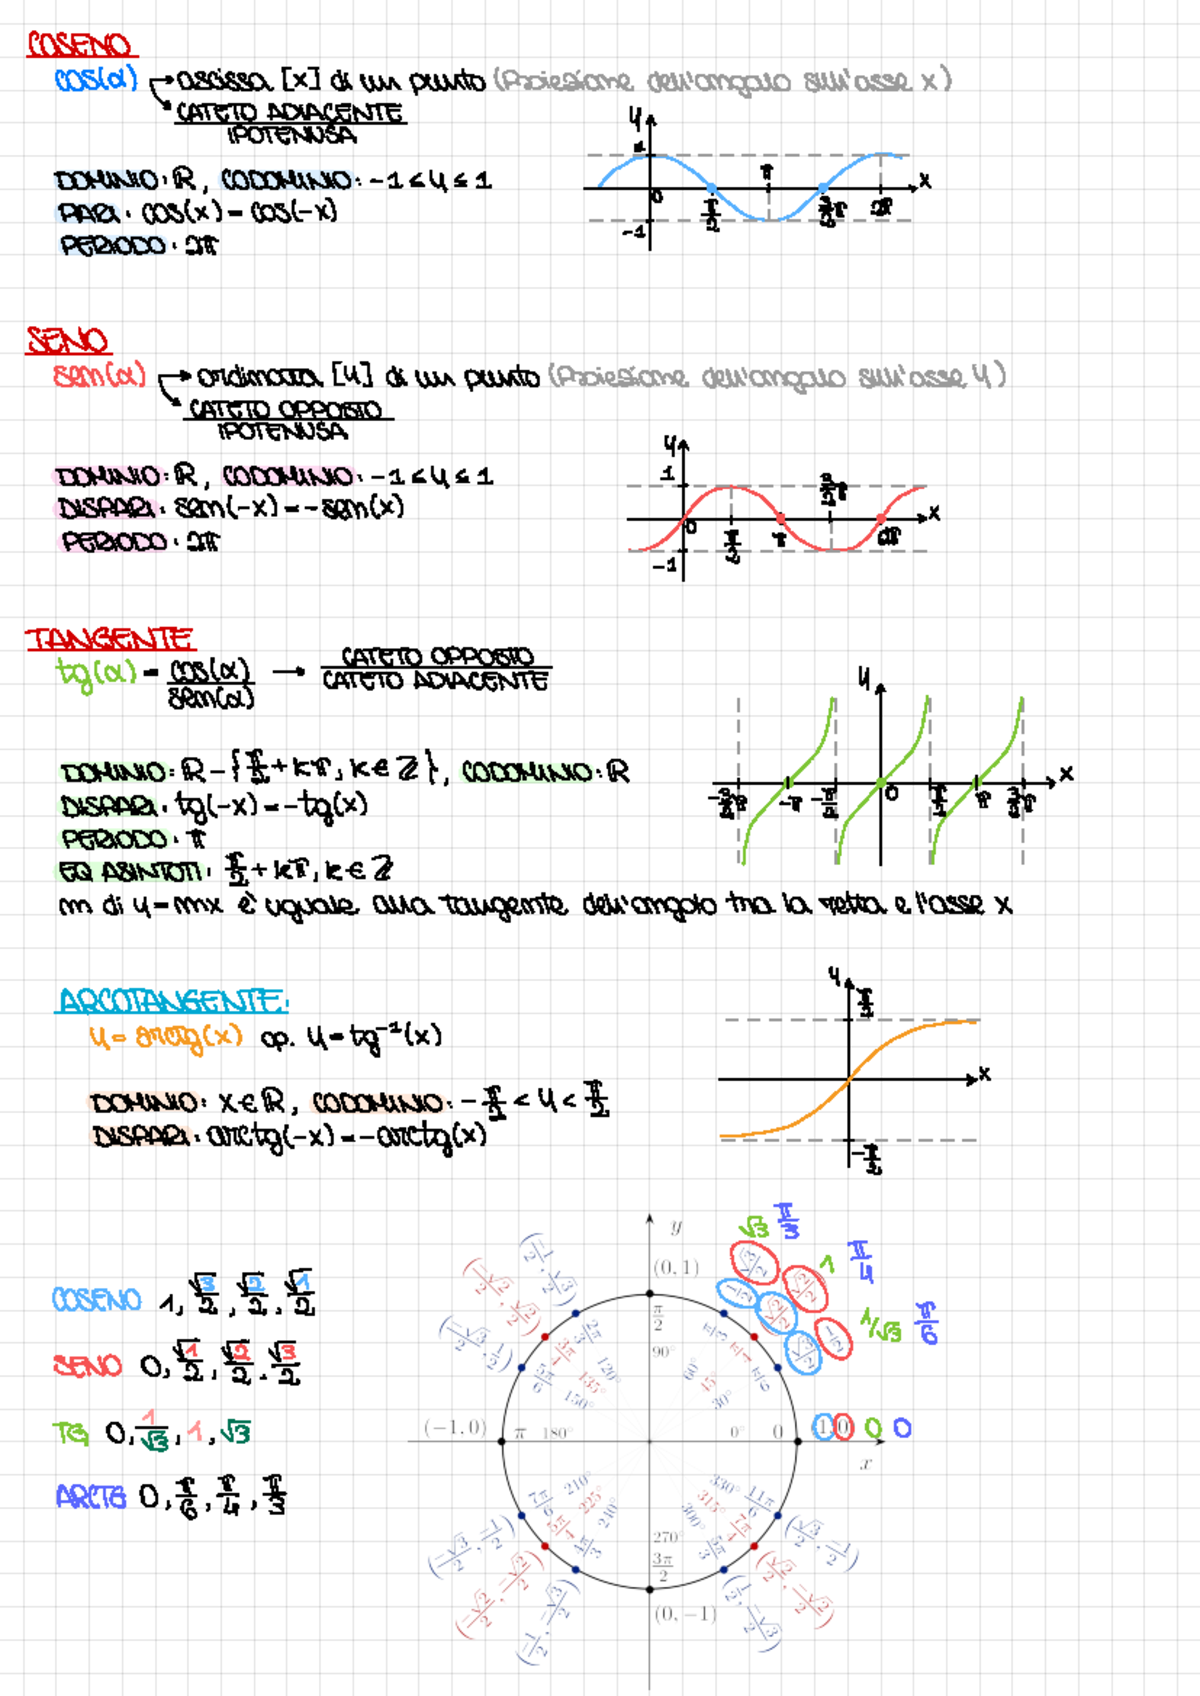 COSENO
cos(α) → ascissa [x] di un punto (Proiezione dell'angolo sull'asse x)
CATETO ADIACENTE
IPOTENUSA
DOMINIO: R, CODOMINIO: -1 ≤ y ≤ 1
PARI: cos(x) = cos(-x)
PERIODO: 2π
y
1
0
π/2
π
3/2 π
2π
x
-1
SENO
sen(α) → ordinata [y] di un punto (Proiezione dell'angolo sull'asse y)
CATETO OPPOSTO
IPOTENUSA
DOMINIO: R, CODOMINIO: -1 ≤ y ≤ 1
DISPARI: sen(-x) = -sen(x)
PERIODO: 2π
y
1
0
π/2
π
3/2 π
2π
x
-1
TANGENTE
tg(α) = cos(α)/sen(α) → CATETO OPPOSTO/CATETO ADIACENTE
DOMINIO: R - {π/2 + kπ, k ∈ Z}, CODOMINIO: R
DISPARI: tg(-x) = -tg(x)
PERIODO: π
EQ ASINTOTI: π/2 + kπ, k ∈ Z
m di y = mx è uguale alla tangente dell'angolo tra la retta e l'asse x
y
-3/2 π
-π
-π/2
0
π/2
π
3/2 π
x
ARCOTANGENTE:
y = arctg(x) op. y = tg⁻¹(x)
DOMINIO: x ∈ R, CODOMINIO: -π/2 < y < π/2
DISPARI: arctg(-x) = -arctg(x)
y
π/2
x
-π/2
COSENO 1, √3/2, √2/2, √1/2
SENO 0, √1/2, √2/2, √3/2
TG 0, 1/√3, 1, √3
ARCTG 0, π/6, π/4, π/3
y
(0, 1)
√3 π/3
1 π/4
1/√3 π/6
(-1/2, √3/2)
(-√2/2, √2/2)
(-√3/2, 1/2)
(1/2, √3/2)
(√2/2, √2/2)
(√3/2, 1/2)
π/2
90°
2π/3 120°
3π/4 135°
5π/6 150°
π/3 60°
π/4 45°
π/6 30°
(-1, 0) π 180°
0° 0 (1, 0) 0 0
x
7π/6 210°
5π/4 225°
4π/3 240°
270°
3π/2
330° 11π/6
315° 7π/4
300° 5π/3
(-√3/2, -1/2)
(-√2/2, -√2/2)
(-1/2, -√3/2)
(0, -1)
(√3/2, -1/2)
(√2/2, -√2/2)
(1/2, -√3/2)